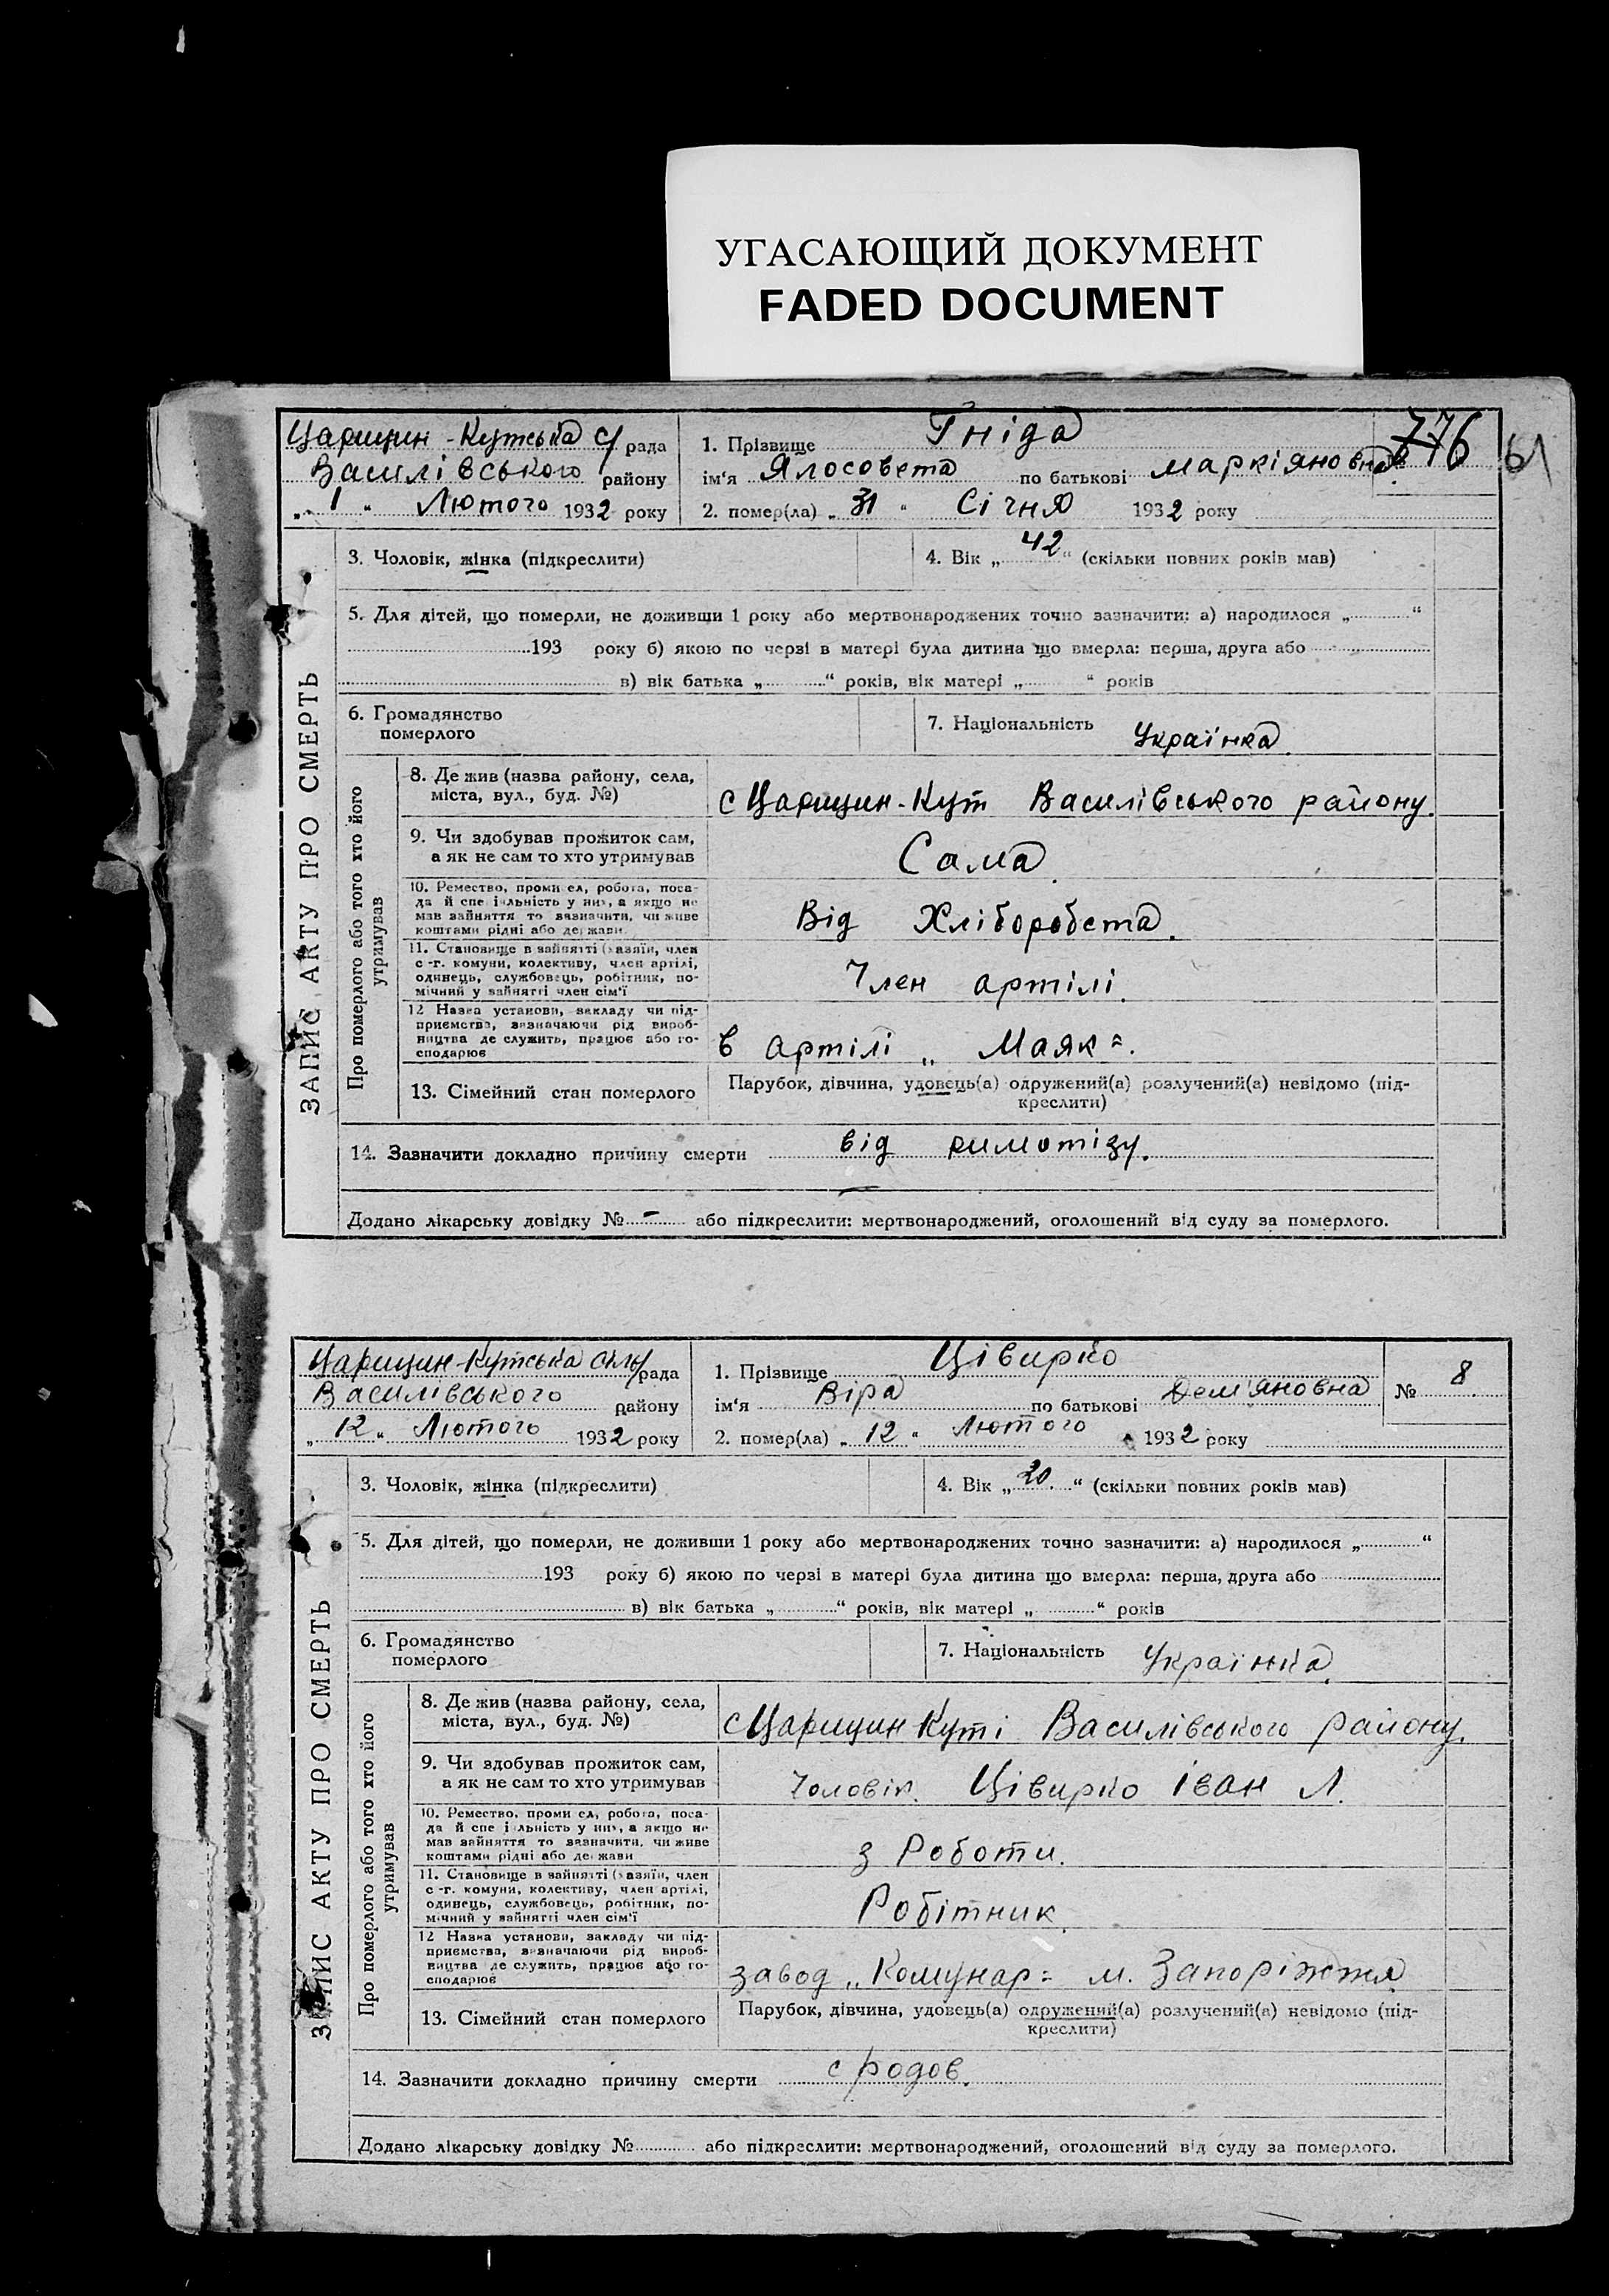 УГАСАЮЩИЙ ДОКУМЕНТ
FADED DOCUMENT
Царицин-Кутська с/рада
Василівського району
„ 1 “ Лютого 1932 року
1. Прізвище Гніда
ім‘я Ялосовета по батькові Маркіяновна
2. помер(ла) „ 31 “ Січня 1932 року
776
61
ЗАПИС АКТУ ПРО СМЕРТЬ
3. Чоловік, жінка (підкреслити)
4. Вік „ 42 “ (скільки повних років мав)
5. Для дітей, що померли, не доживши 1 року або мертвонароджених точно зазначити: а) народилося „ “
193 року б) якою по черзі в матері була дитина що вмерла: перша, друга або
в) вік батька „ “ років, вік матері „ “ років
6. Громадянство
померлого
7. Національність Українка
Про померлого або того хто його
утримував
8. Де жив (назва району, села,
міста, вул., буд. №)
с Царицин-Кут Василівського району.
9. Чи здобував прожиток сам,
а як не сам то хто утримував
Сама.
10. Ремество, проми ел, робота, поса-
да й спе іальність у них, а якщо не
мав зайняття то зазначити, чи живе
коштами рідні або держави
Від Хліборобста.
11. Становище в зайнятті (хазяїн, член
с-г. комуни, колективу, член артілі,
одинець, службовець, робітник, по-
мічний у зайнятті член сім'ї
Член артілі.
12 Назва установи, закладу чи під-
приємства, зазначаючи рід вироб-
ництва де служить, працює або го-
сподарює
в артілі „ Маяк “.
13. Сімейний стан померлого
Парубок, дівчина, удовець(а) одружений(а) розлучений(а) невідомо (під-
креслити)
14. Зазначити докладно причину смерти від римотізу.
Додано лікарську довідку № - або підкреслити: мертвонароджений, оголошений від суду за померлого.
Царицин-Кутська сіль/рада
Василівського району
„ 12 “ Лютого 1932 року
1. Прізвище Цівирко
ім‘я Віра по батькові Дем'яновна
2. помер(ла) „ 12 “ Лютого 1932 року
№ 8.
ЗАПИС АКТУ ПРО СМЕРТЬ
3. Чоловік, жінка (підкреслити)
4. Вік „ 20. “ (скільки повних років мав)
5. Для дітей, що померли, не доживши 1 року або мертвонароджених точно зазначити: а) народилося „ “
193 року б) якою по черзі в матері була дитина що вмерла: перша, друга або
в) вік батька „ “ років, вік матері „ “ років
6. Громадянство
померлого
7. Національність Українка
Про померлого або того хто його
утримував
8. Де жив (назва району, села,
міста, вул., буд. №)
с Царицин Куті Василівського району.
9. Чи здобував прожиток сам,
а як не сам то хто утримував
Чоловік. Цівирко Іван Л.
10. Ремество, проми ел, робота, поса-
да й спе іальність у них, а якщо не
мав зайняття то зазначити, чи живе
коштами рідні або держави
з Роботи.
11. Становище в зайнятті (хазяїн, член
с-г. комуни, колективу, член артілі,
одинець, службовець, робітник, по-
мічний у зайнятті член сім'ї
Робітник.
12 Назва установи, закладу чи під-
приємства, зазначаючи рід вироб-
ництва де служить, працює або го-
сподарює
завод „Комунар“ м. Запоріжжя
13. Сімейний стан померлого
Парубок, дівчина, удовець(а) одружений(а) розлучений(а) невідомо (під-
креслити)
14. Зазначити докладно причину смерти с родов.
Додано лікарську довідку № або підкреслити: мертвонароджений, оголошений від суду за померлого.